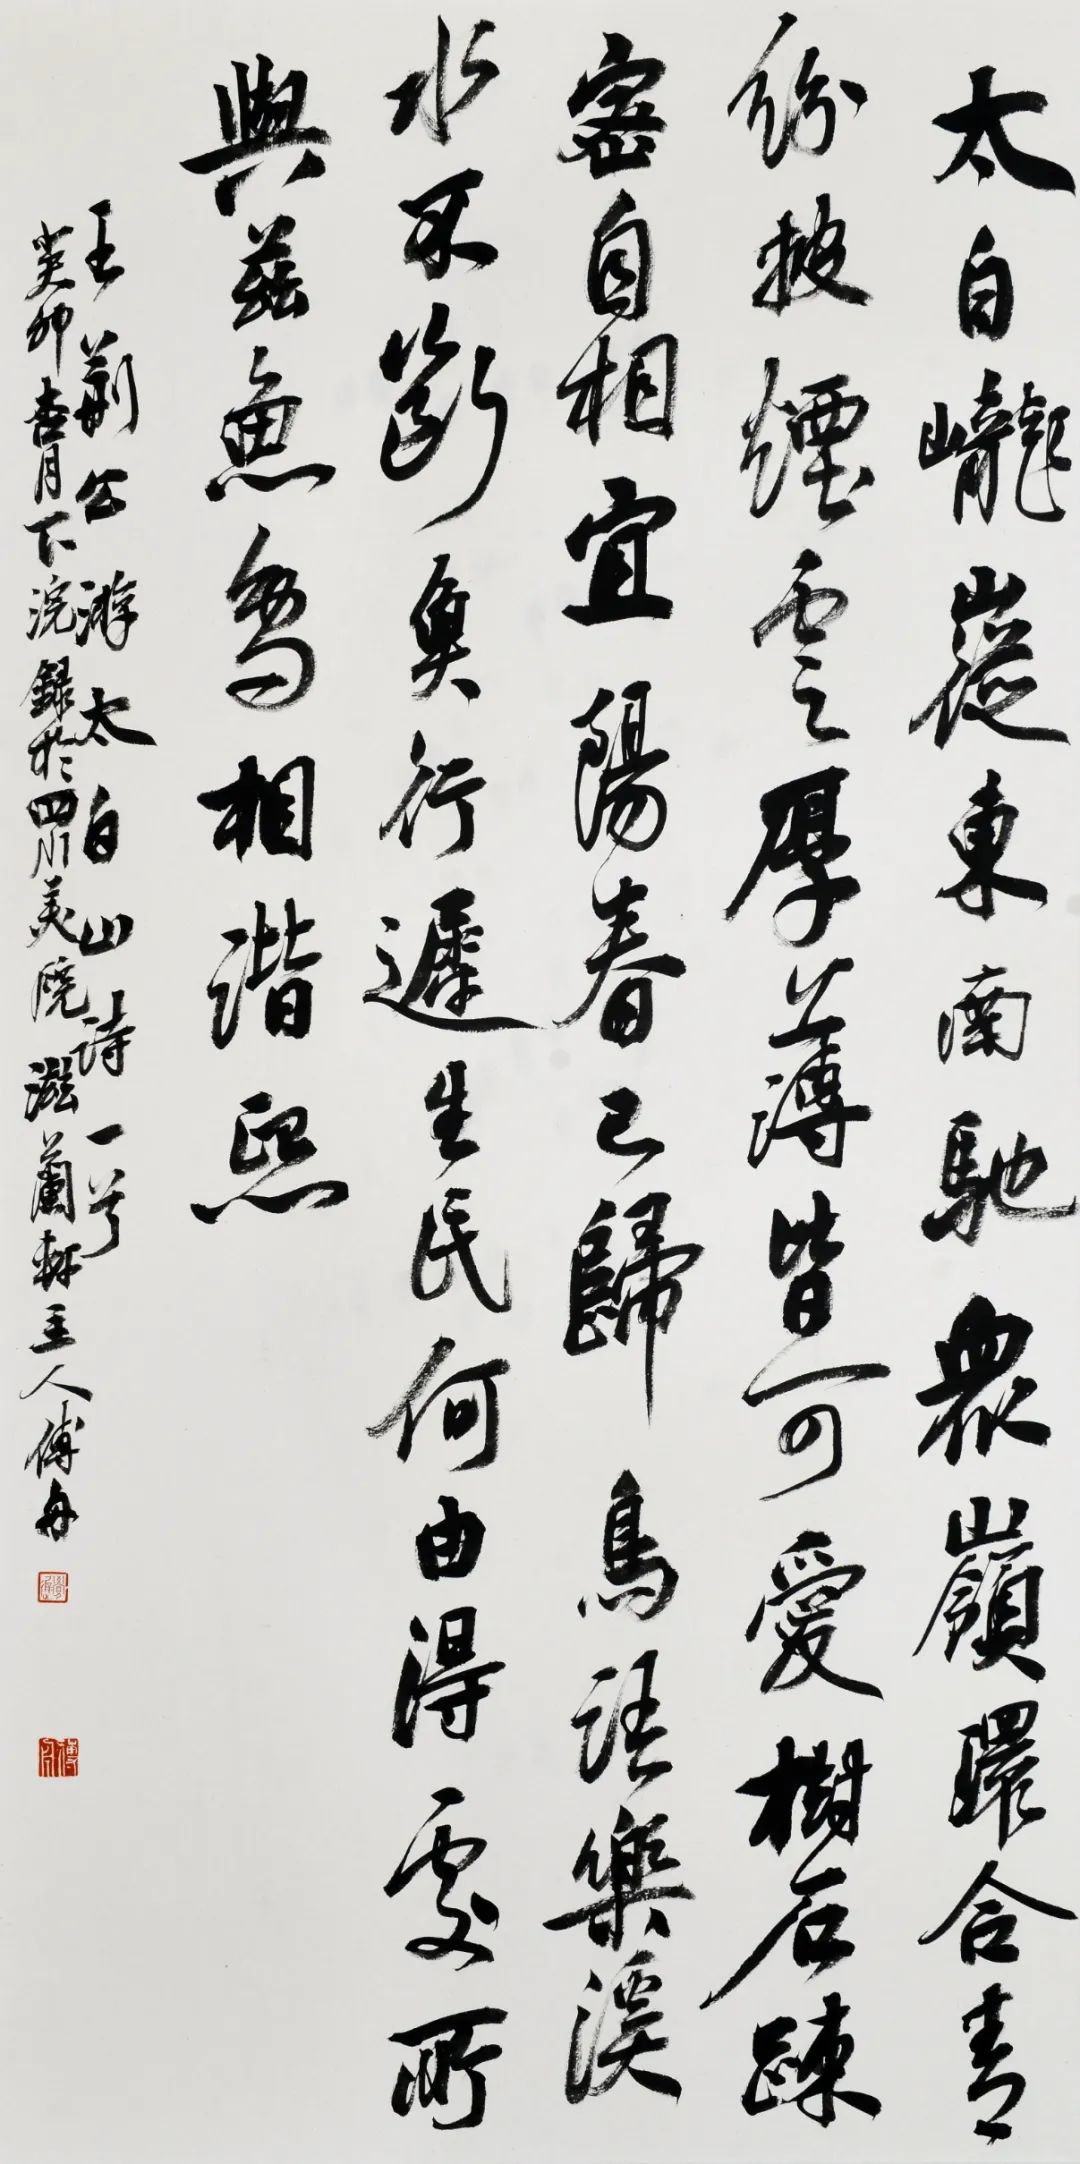 太白巄嵸東南馳衆嶺環合青
紛披煙雲厚薄皆可愛樹石疎
密自相宜陽春已歸鳥語樂溪
水不斷魚行遲生民何由得處所
與茲魚鳥相諧熙
王荆公游太白山詩一首
癸卯杏月下浣錄於四川美院滋蘭軒主人傅舟